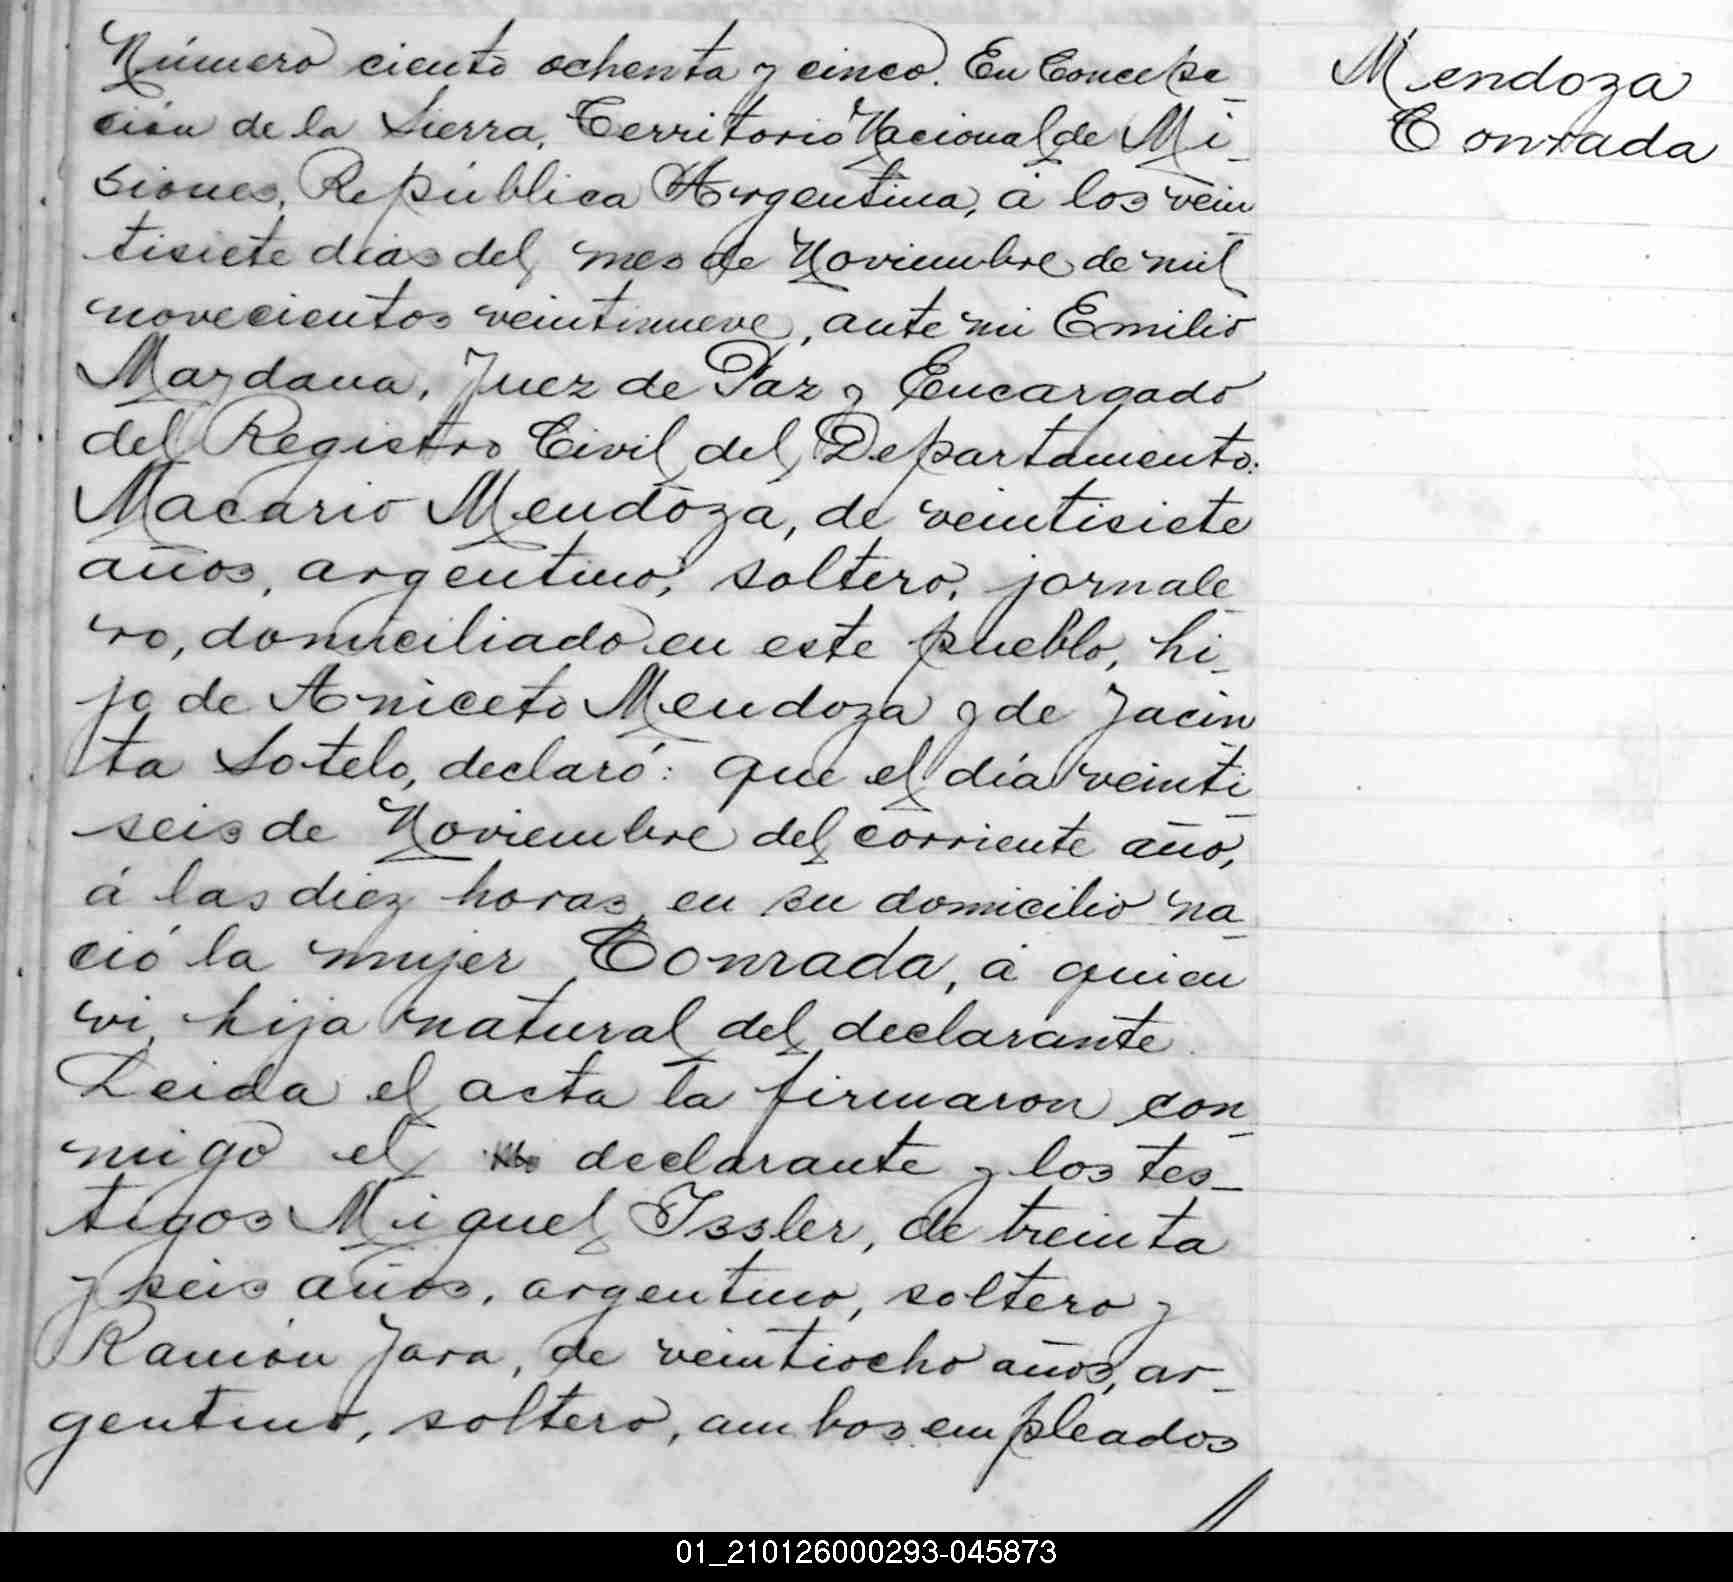 Número ciento ochenta y cinco. En Concep
Mendoza
Conrada
ción de la Sierra, Territorio Nacional de Mi_
siones, República Argentina, á los vein
tisiete dias del mes de Noviembre de mil
novecientos veintinueve, ante mi Emilio
Maydana, Juez de Paz y Encargado
del Registro Civil del Departamento:
Macario Mendoza, de veintisiete
años, argentino, soltero, jornale_
ro, domiciliado en este pueblo, hi_
jo de Aniceto Mendoza y de Jacin
ta Sotelo, declaró: que el día veinti_
seis de Noviembre del corriente año,
á las diez horas, en su domicilio na_
ció la mujer Conrada, á quien
vi, hija natural del declarante.
Leida el acta la firmaron con_
migo el declarante y los tes_
tigos Miguel Issler, de treinta
y seis años, argentino, soltero y
Ramón Jara, de veintiocho años, ar_
gentino, soltero, ambos empleados
01_210126000293-045873